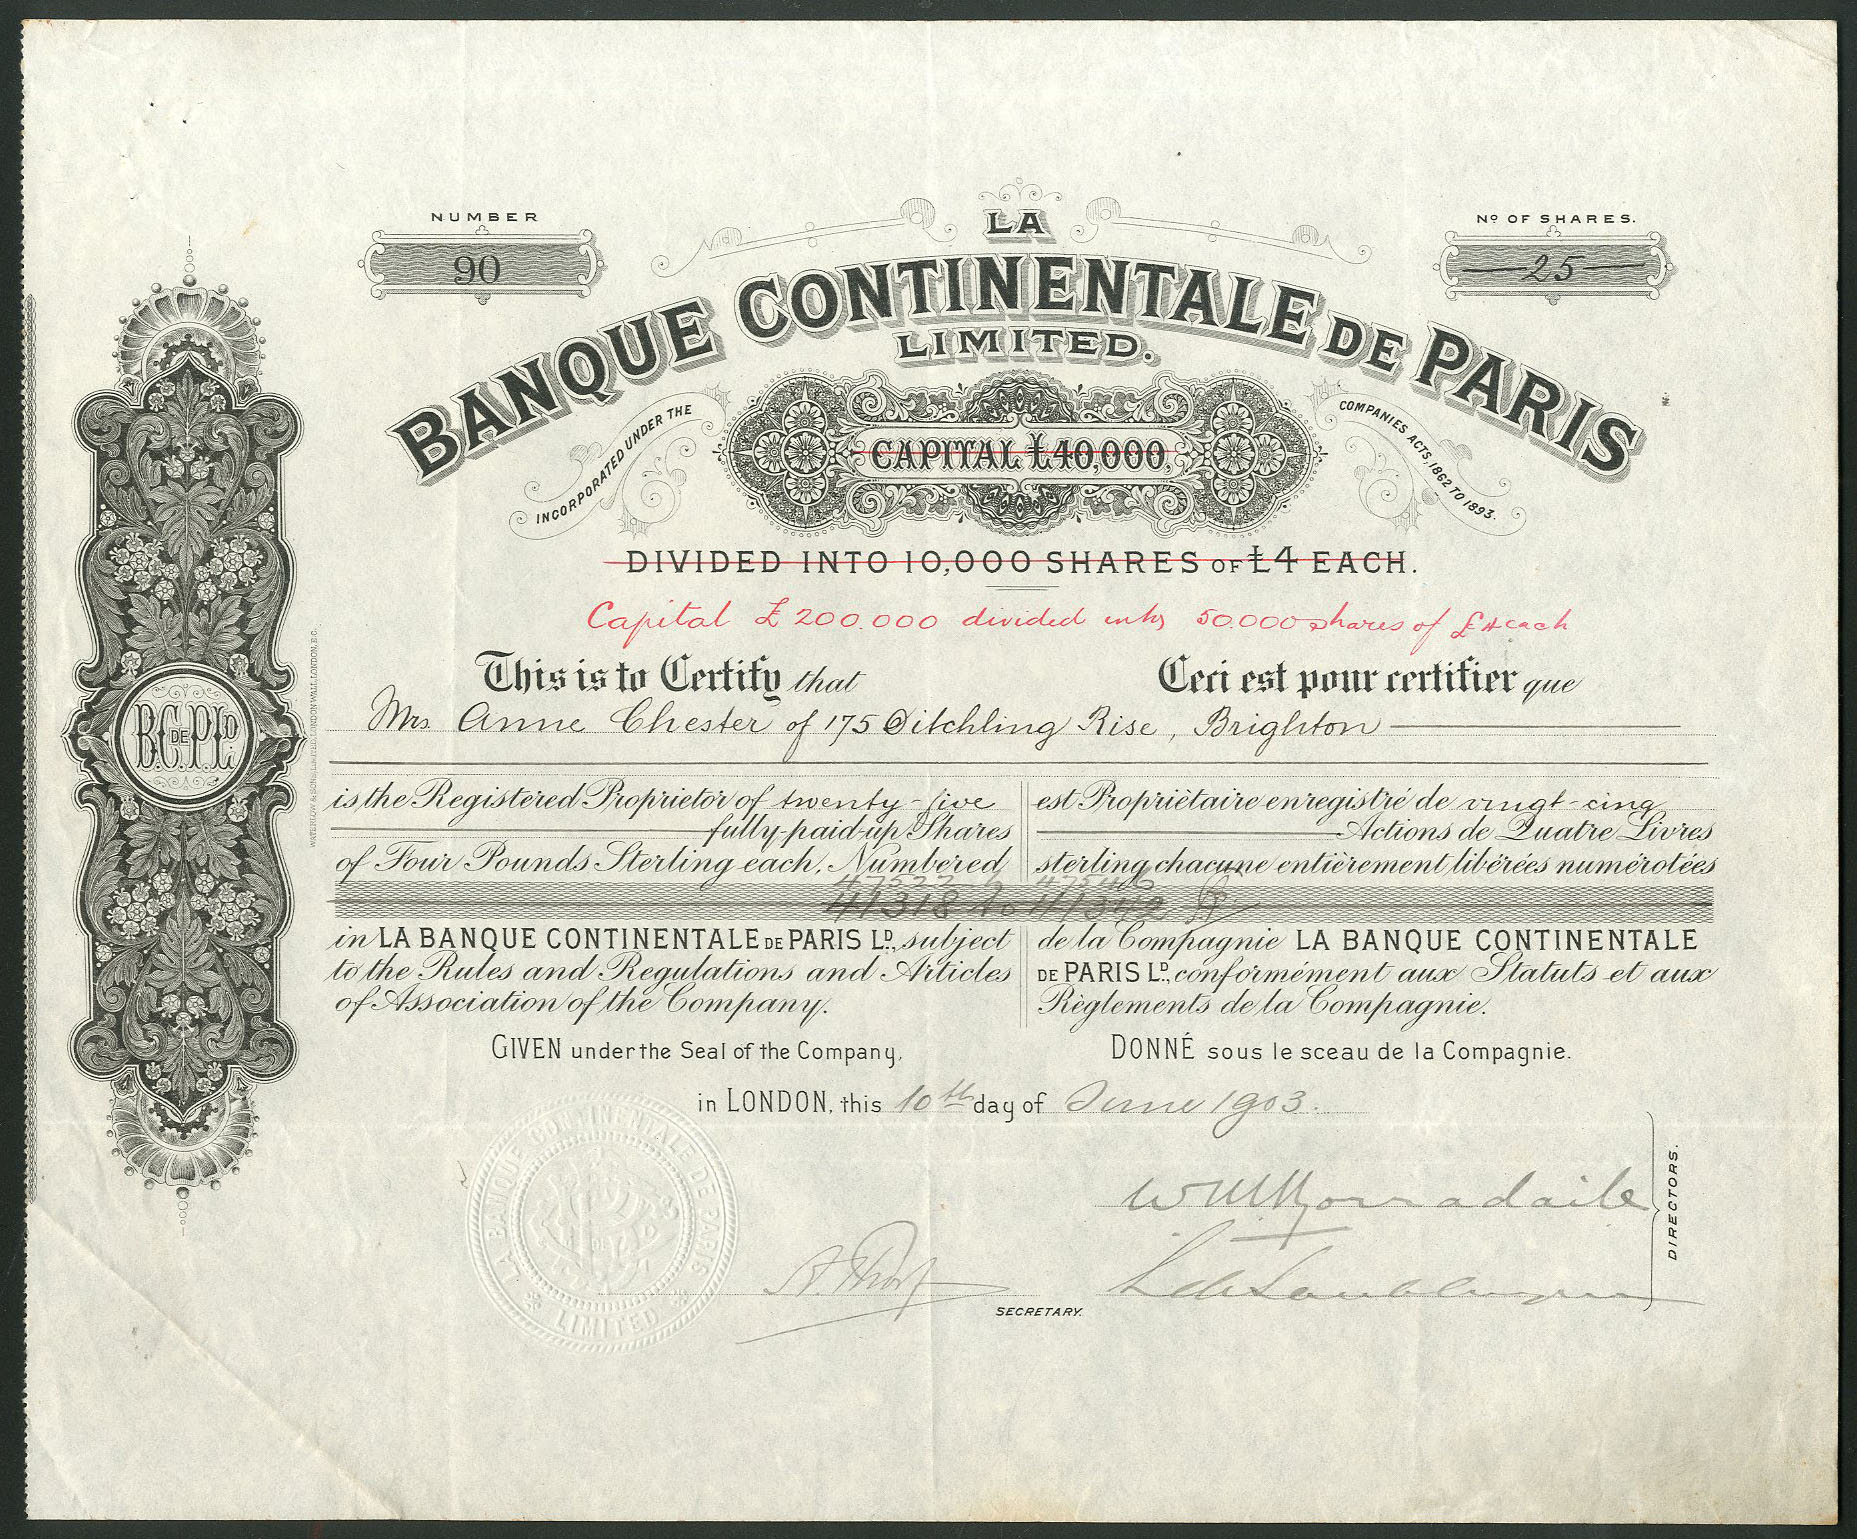 NUMBER
90
Nº OF SHARES.
25
LA
BANQUE CONTINENTALE DE PARIS
LIMITED.
INCORPORATED UNDER THE
COMPANIES ACTS, 1862 TO 1893.
CAPITAL £40,000,
DIVIDED INTO 10,000 SHARES OF £4 EACH.
Capital £200.000 divided into 50.000 shares of £4 each
This is to Certify that
Ceci est pour certifier que
Mrs Anne Chester of 175 Ditchling Rise, Brighton
is the Registered Proprietor of twenty-five
fully-paid-up Shares
of Four Pounds Sterling each, Numbered
est Propriètaire enregistré de vingt-cinq
Actions de Quatre Livres
sterling chacune entièrement libérées numérotées
41318 to 41342
in LA BANQUE CONTINENTALE DE PARIS LD., subject
to the Rules and Regulations and Articles
of Association of the Company.
de la Compagnie LA BANQUE CONTINENTALE
DE PARIS LD., conformément aux Statuts et aux
Règlements de la Compagnie.
GIVEN under the Seal of the Company,
DONNÉ sous le sceau de la Compagnie.
in LONDON, this 10th day of June 1903.
DIRECTORS.
SECRETARY.
LA BANQUE CONTINENTALE DE PARIS
LIMITED
B.C. DE P. LD.
WATERLOW & SONS LIMITED, LONDON WALL, LONDON, E.C.